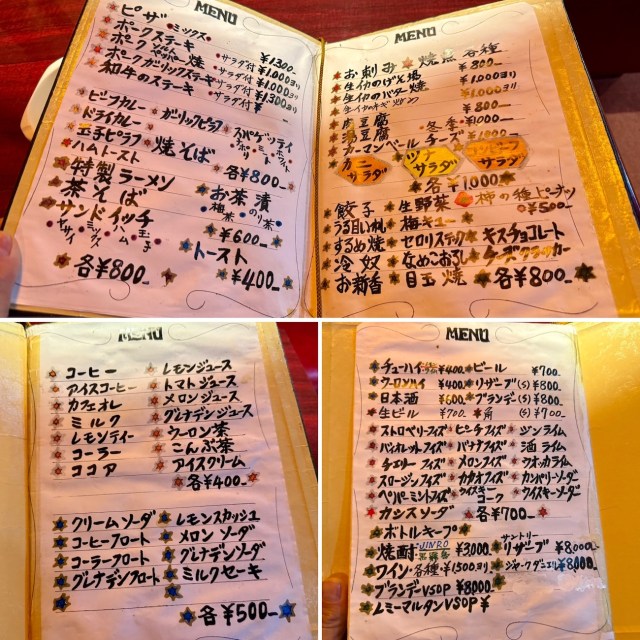 MENU
ピザ ミックス ¥1300-
ポークステーキ サラダ付 ¥1.000ヨリ
ポークペッパー焼 サラダ付 ¥1.000ヨリ
ポークガーリックステーキ サラダ付 ¥1.300ヨリ
和牛のステーキ サラダ付 ¥
ビーフカレー ガーリックピラフ スパゲッティ
ドライカレー ミート ホワイト
玉子ピラフ 焼そば
ハムトースト 各¥800-
特製ラーメン お茶漬
茶そば 梅茶 のり茶
サンドイッチ ¥600-
ツナ ミックス ハム 玉子 トースト
各¥800- ¥400-
MENU
お刺み 焼魚 各種
生イカのげそ揚 ¥800-
生イカのバター焼 ¥1.000ヨリ
¥1.000ヨリ
肉豆腐 ¥800-
湯豆腐 冬季 ¥1000-
カマンベールチーズ ¥1000-
カニサラダ ツナサラダ コンビーフサラダ
各¥1.000-
餃子 生野菜 柿の種とピーナッツ
うる目いわし 梅キュー ¥500-
するめ焼 セロリスティック キスチョコレート
冷奴 なめこおろし チーズクラッカー
お新香 目玉焼 各¥800-
MENU
コーヒー レモンジュース
アイスコーヒー トマトジュース
カフェオレ メロンジュース
ミルク グレナデンジュース
レモンティー ウーロン茶
コーラー こんぶ茶
ココア アイスクリーム
各¥400-
クリームソーダ レモンスカッシュ
コーヒーフロート メロンソーダ
コーラーフロート グレナデンソーダ
グレナデンフロート ミルクセーキ
各¥500-
MENU
チューハイ ¥400- ビール ¥700-
ウーロンハイ ¥400- リザーブ(S) ¥800
日本酒 ¥600- ブランデー(S) ¥800
生ビール ¥700- 角 (S) ¥700-
ストロベリーフィズ ピーチフィズ ジンライム
バイオレットフィズ バナナフィズ 酒ライム
チェリーフィズ メロンフィズ ウオッカライム
スロージンフィズ カカオフィズ カンパリーソーダ
ペパーミントフィズ ウイスキーコーク ウイスキーソーダ
カシスソーダ 各¥700-
ボトルキープ
焼酎 JINRO ¥3.000 サントリーリザーブ ¥8.000-
ワイン・各種 ¥1,500ヨリ ジャックダニエル ¥8.000-
ブランデーVSOP ¥8.000-
レミーマルタンVSOP ¥